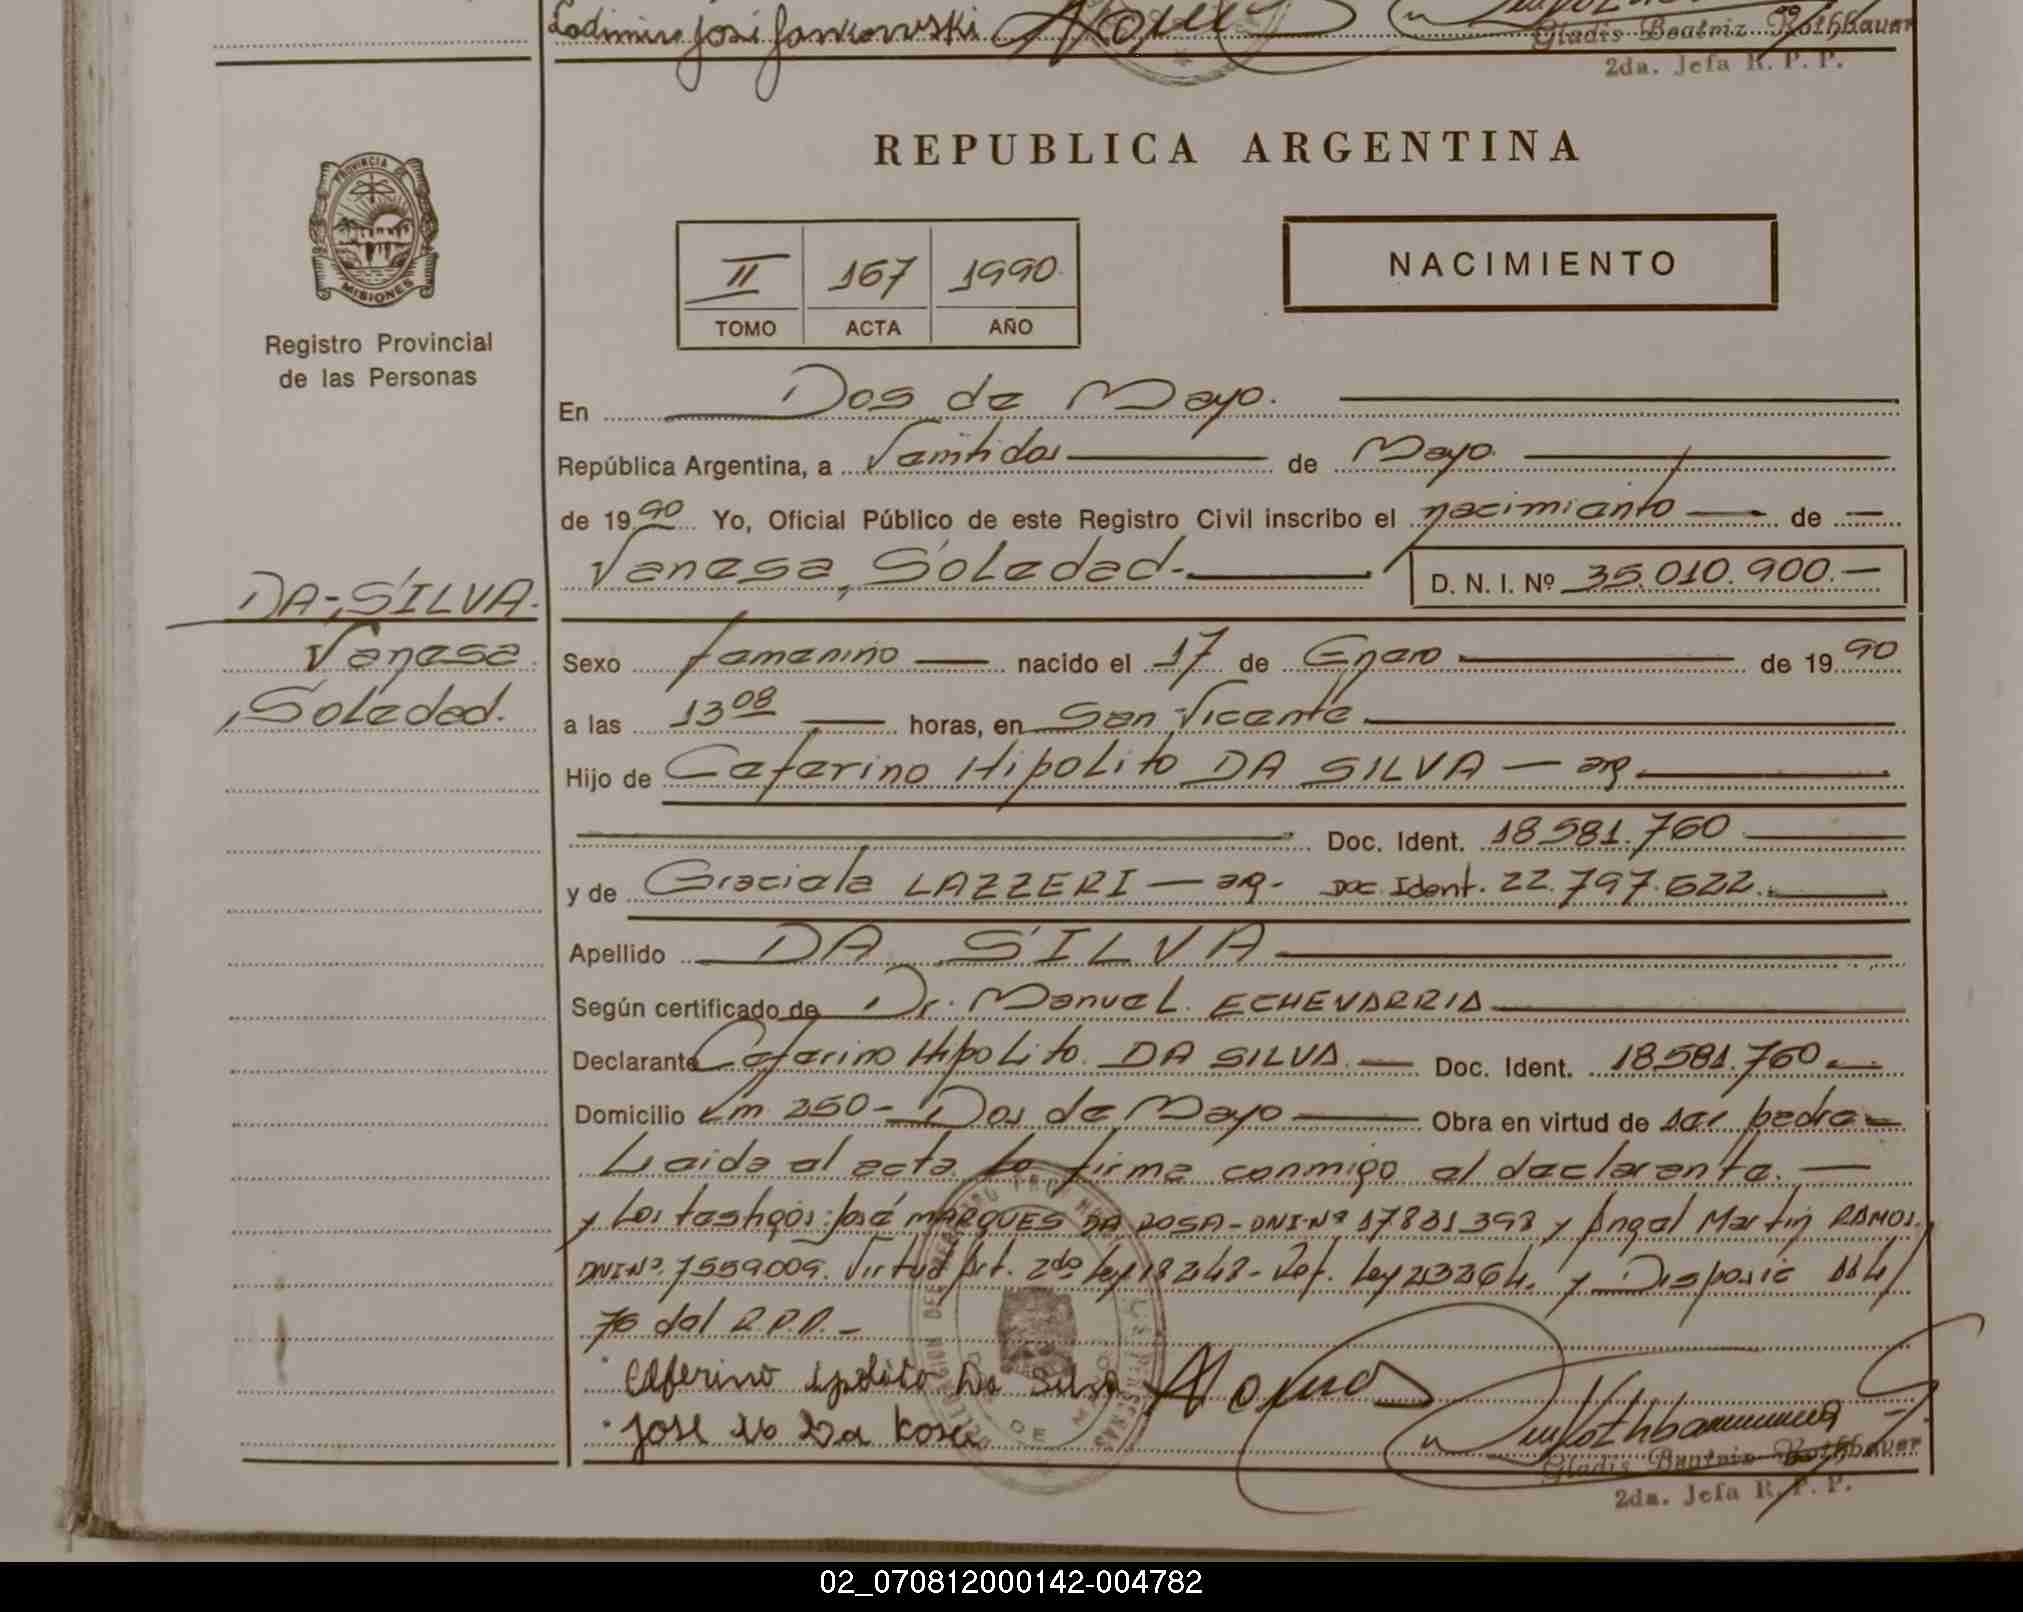 Lodimiro José Jankowski
Gladis Beatriz Rothbauer
2da. Jefa R. P. P.
PROVINCIA DE
MISIONES
Registro Provincial
de las Personas
REPUBLICA ARGENTINA
II 167 1990
TOMO ACTA AÑO
NACIMIENTO
En Dos de Mayo.
República Argentina, a Veintidos de Mayo
de 1990 Yo, Oficial Público de este Registro Civil inscribo el nacimiento de
Vanesa Soledad.- D. N. I. Nº 35.010.900.-
DA-SILVA.
Vanesa
Soledad.
Sexo femenino nacido el 17 de Enero de 1990
a las 13 08 horas, en San Vicente
Hijo de Ceferino Hipolito DA SILVA — arg
Doc. Ident. 18581.760
y de Graciela LAZZERI — arg- Doc Ident. 22.797.622.
Apellido DA SILVA
Según certificado de Dr. Manuel ECHEVARRIA
Declarante Ceferino Hipolito DA SILVA. Doc. Ident. 18581.760
Domicilio Km 250- Dos de Mayo Obra en virtud de ser padre
Leida el acta la firma conmigo el declarante.
y Los testigos: José MARQUES DA ROSA-DNI-Nº 17831398 y Angel Martin RAMOS.
DNI Nº 7559009. Virtud Art. 2do Ley 18248- Ref. Ley 23264. y Disposic 114/
76 del R.P.P.-
Ceferino ipolito Da Silva
Jose Da Rosa
Gladis Beatriz Rothbauer
2da. Jefa R. P. P.
02_070812000142-004782